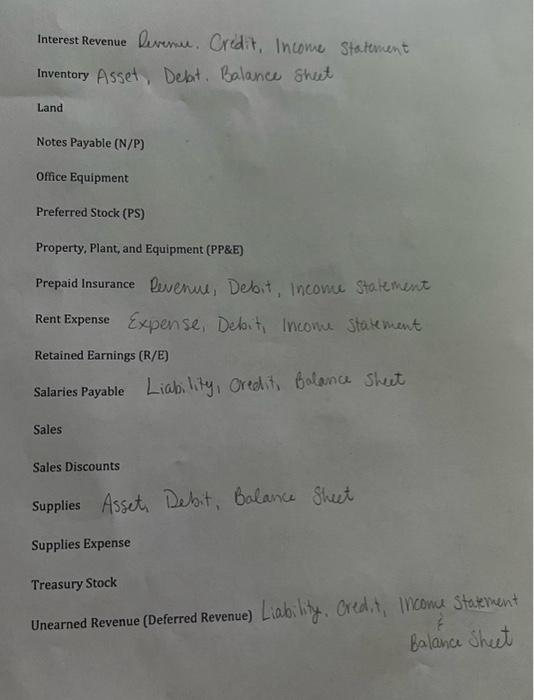 Interest Revenue Revenue, Credit, Income Statement
Inventory Asset, Debit, Balance Sheet
Land
Notes Payable (N/P)
Office Equipment
Preferred Stock (PS)
Property, Plant, and Equipment (PP&E)
Prepaid Insurance Revenue, Debit, Income Statement
Rent Expense Expense, Debit, Income Statement
Retained Earnings (R/E)
Salaries Payable Liability, Credit, Balance Sheet
Sales
Sales Discounts
Supplies Asset, Debit, Balance Sheet
Supplies Expense
Treasury Stock
Unearned Revenue (Deferred Revenue) Liability, Credit, Income Statement
&
Balance Sheet